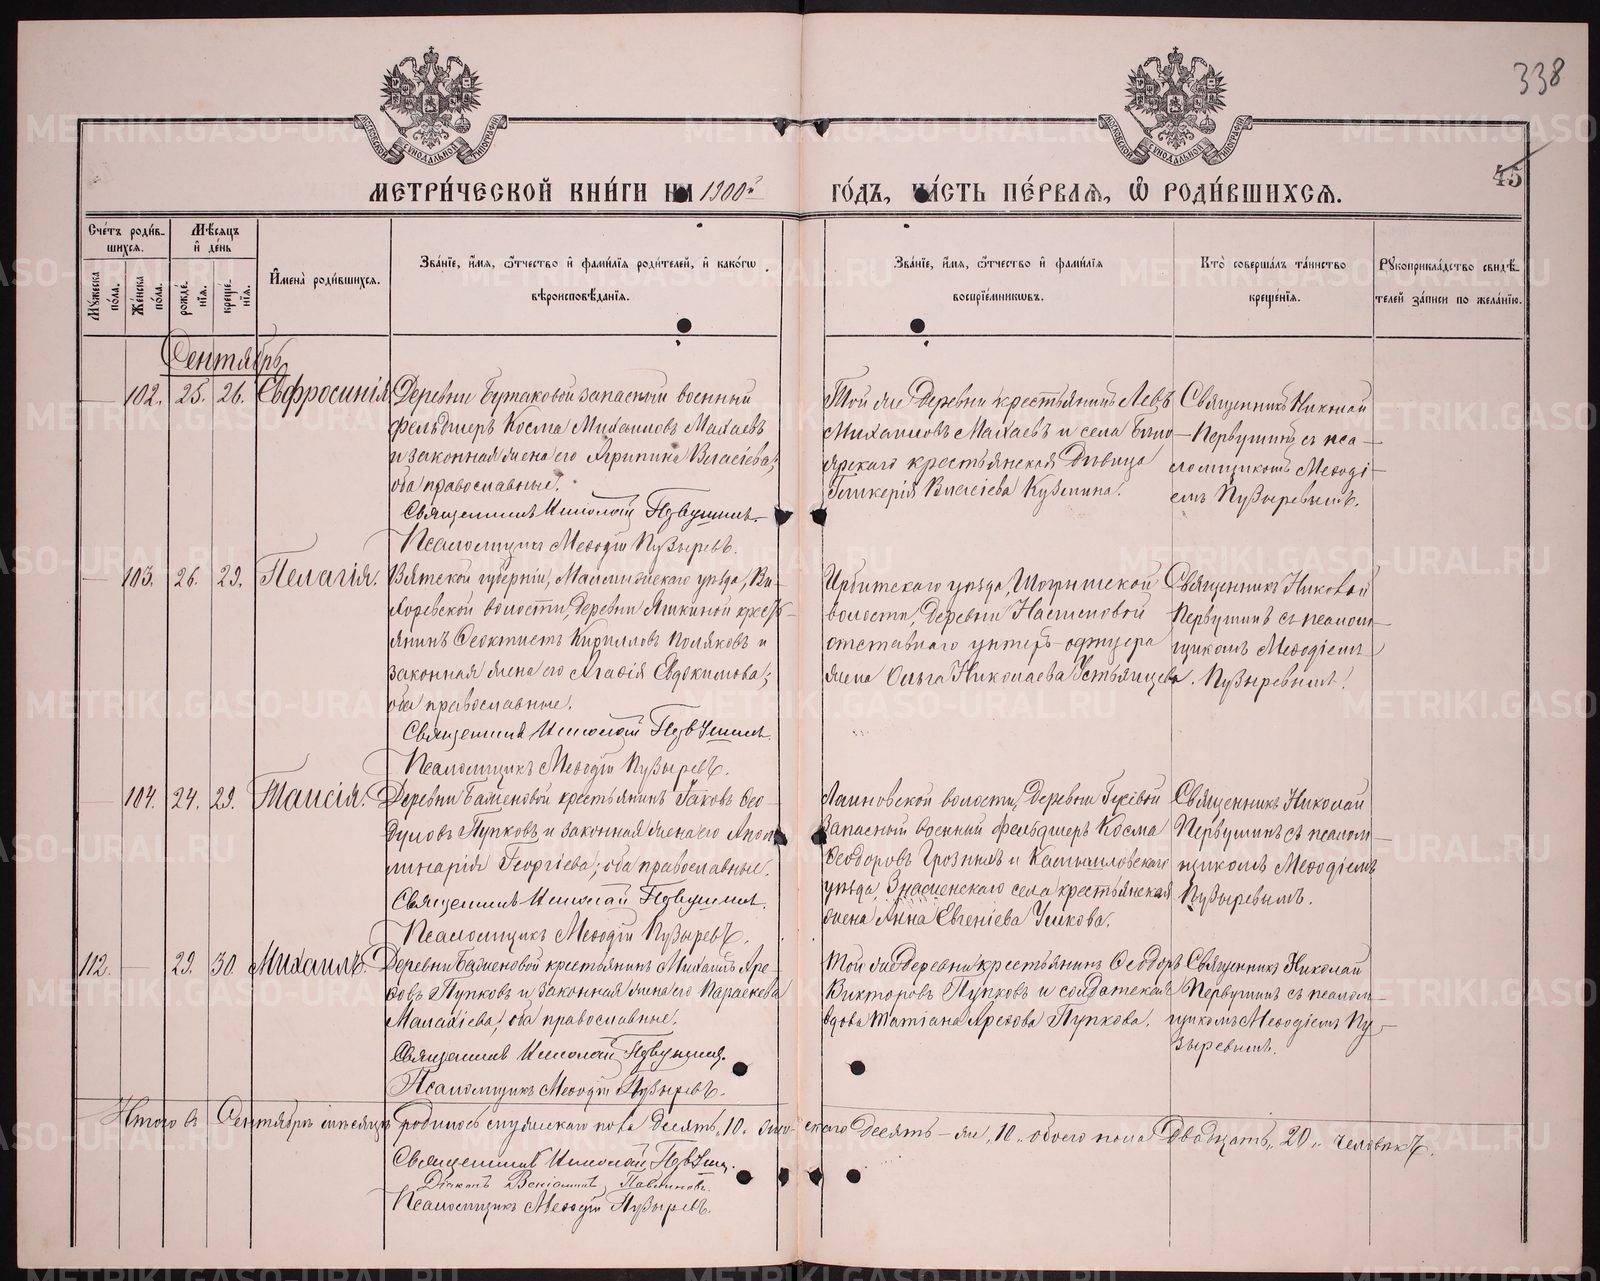 338
45
МОСКОВСКОЙ СѴНОДАЛЬНОЙ ТИПОГРАФІИ
МОСКОВСКОЙ СѴНОДАЛЬНОЙ ТИПОГРАФІИ
МЕТРИ́ЧЕСКОЙ КНИ́ГИ НА 1900й ГО́ДЪ, ЧА́СТЬ ПЕ́РВАѦ, Ѽ РОДИ́ВШИХСѦ.
Сче́тъ роди́в-
шихсѧ.
Мѣ́сѧцъ
и҆ де́нь
Мꙋ́жеска по́ла.
Же́нска по́ла.
рожде́нїѧ.
креще́нїѧ.
И҆мена̀ роди́вшихсѧ.
Зва́нїе, и҆́мѧ, ѻ҆́тчество и҆ фами́лїѧ роди́телей, и҆ како́гѡ
вѣроисповѣ́данїѧ.
Зва́нїе, и҆́мѧ, ѻ҆́тчество и҆ фами́лїѧ
воспрїе́мникѡвъ.
Кто̀ соверша́лъ та́инство
креще́нїѧ.
Рꙋкоприкла́дство свидѣ́-
телей за́писи по жела́нїю.
Сентябрь
102. 25. 26. Евфросинія
Деревни Бутаковой запасный военный
фельдшеръ Косма Михаиловъ Махаевъ
и законная жена его Агрипина Власіева;
оба православные.
Священникъ Николай Первушинъ.
Псаломщикъ Меѳодій Пузыревъ.
Той же деревни крестьянинъ Левъ
Михаиловъ Махаевъ и села Бѣло-
ярскаго крестьянская дѣвица
Гликерія Власіева Кузмина.
Священникъ Николай
Первушинъ съ пса-
ломщикомъ Меѳоді-
емъ Пузыревымъ.
103. 26. 29. Пелагія.
Вятской губерніи, Малмыжскаго уѣзда,
волости, деревни Яшкиной кресть-
янинъ Ѳеоктистъ Кирилловъ Поляковъ и
законная жена его Агаѳія Евдокимова;
оба православные.
Священникъ Николай Первушинъ.
Псаломщикъ Меѳодій Пузыревъ.
Ирбитскаго уѣзда, Шогришской
волости, деревни
отставнаго унтеръ-офицера
жена Ольга Николаева Устьянцева.
Священникъ Николай
Первушинъ съ псалом-
щикомъ Меѳодіемъ
Пузыревымъ.
104. 24. 29. Таисія.
Деревни Баженовой крестьянинъ Іаковъ Ѳео-
дуловъ Пупковъ и законная жена его Апол-
линарія Георгіева; оба православные.
Священникъ Николай Первушинъ.
Псаломщикъ Меѳодій Пузыревъ.
волости, деревни Гусевой
запасный военный фельдшеръ Косма
Ѳеодоровъ Грозныхъ и Камышловскаго
уѣзда, Знаменскаго села крестьянская
жена Анна Евгеніева Ушкова.
Священникъ Николай
Первушинъ съ псалом-
щикомъ Меѳодіемъ
Пузыревымъ.
112. 29. 30 Михаилъ.
Деревни Баженовой крестьянинъ Михаилъ Аре-
ѳовъ Пупковъ и законная жена его Параскева
Малахіева; оба православные.
Священникъ Николай Первушинъ.
Псаломщикъ Меѳодій Пузыревъ.
Той же деревни крестьянинъ Ѳеодоръ
Викторовъ Пупковъ и солдатская
вдова Татіана Ареѳова Пупкова.
Священникъ Николай
Первушинъ съ псалом-
щикомъ Меѳодіемъ Пу-
зыревымъ.
Итого въ Сентябрѣ мѣсяцѣ родилось мужскаго пола десять „10„ женскаго десять – же „10„ обоего пола двадцать „20„ человѣкъ.
Священникъ Николай Первушинъ.
Діаконъ Веніаминъ
Псаломщикъ Меѳодій Пузыревъ.
METRIKI.GASO-URAL.RU